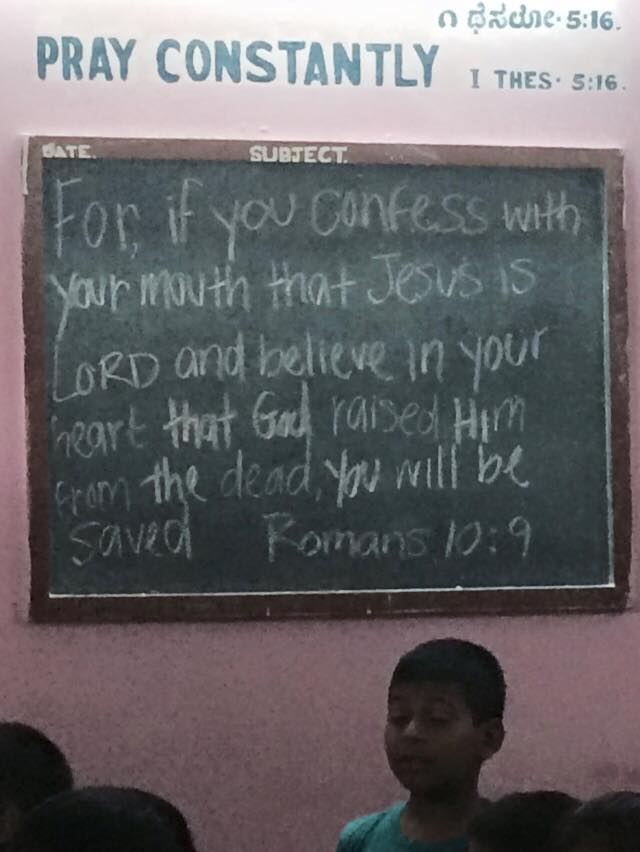 ೧ ಥೆಸಲೋ· 5:16.
PRAY CONSTANTLY I THES· 5:16.
DATE. SUBJECT.
For, if you confess with
your mouth that Jesus is
LORD and believe in your
heart that God raised Him
from the dead, you will be
saved Romans 10:9